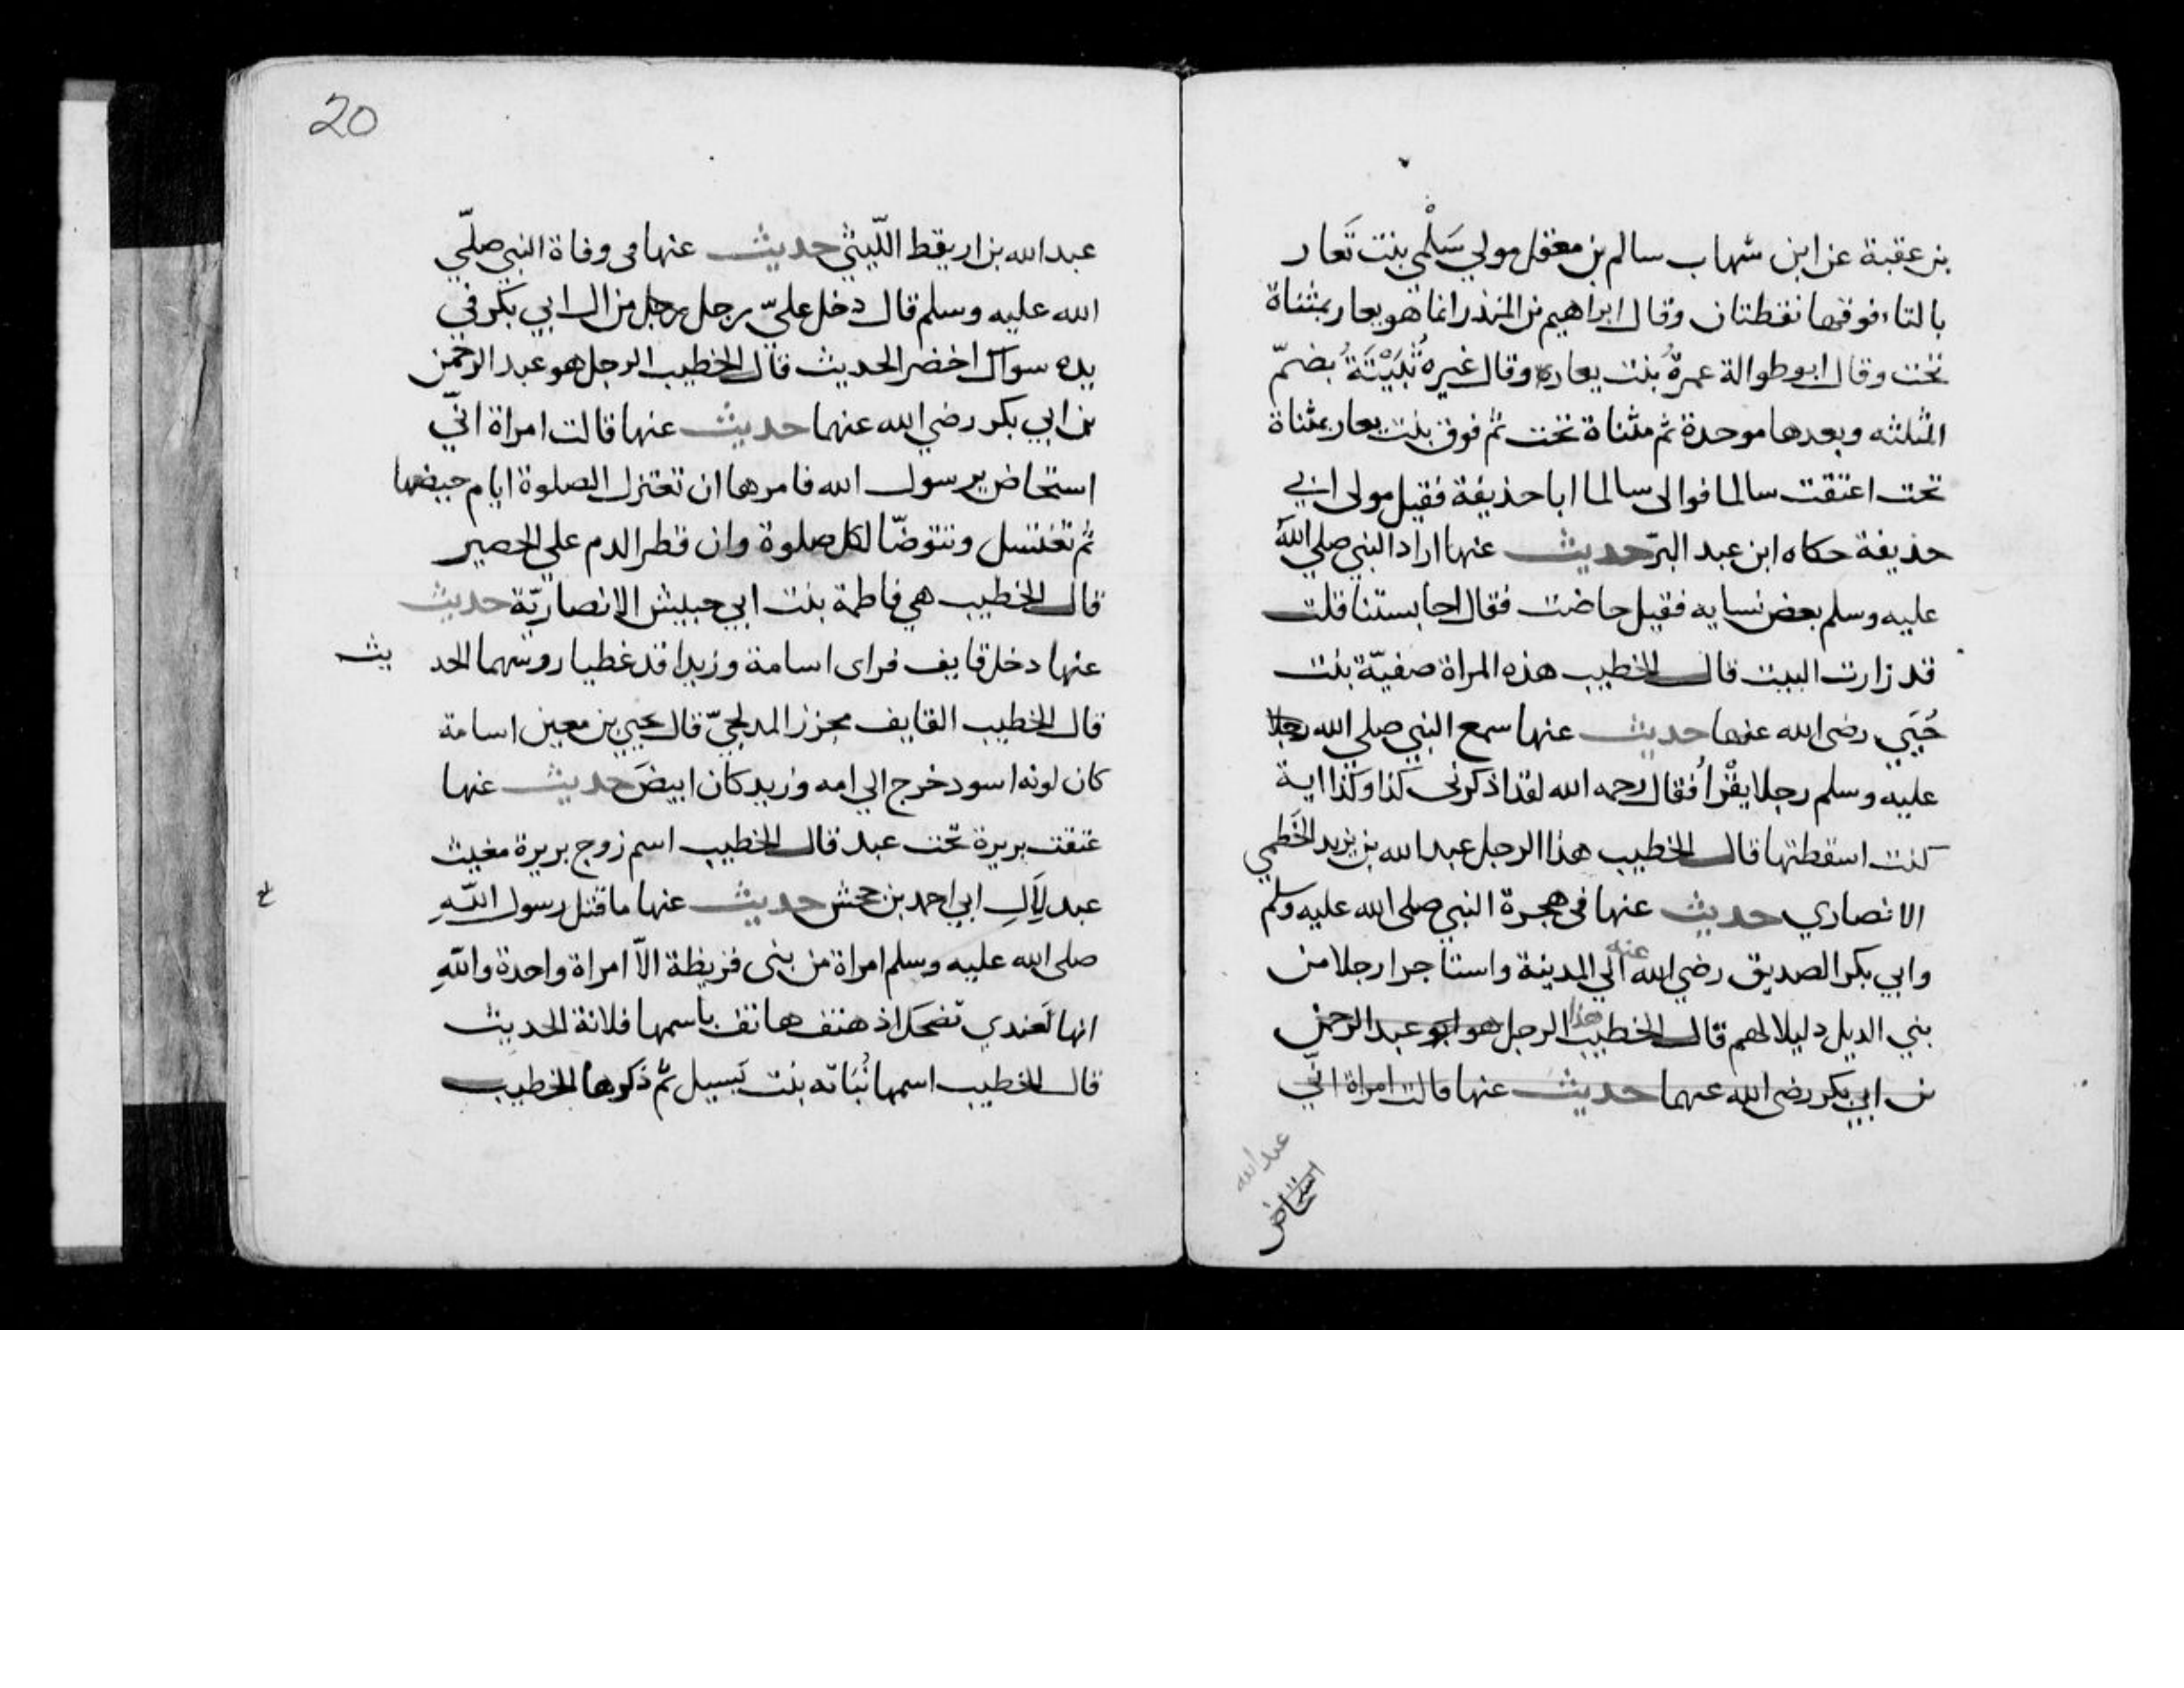 بن عقبة عن ابن شهاب سالم بن معقل مولي سَلْمي بنت تَعار
بالتاء فوقها نقطتان وقال ابراهيم بن المنذر انما هو يعار بمثناة
تحت وقال ابو طوالة عمرةُ بنت يعاره وقال غيره ثُبَيْتَةُ بضمّ
المثلثه وبعدها موحدة ثم مثناة تحت ثم فوق بنت يعار بمثناة
تحت اعتقت سالما فوالى سالما ابا حذيفة فقيل مولى ابي
حذيفة حكاه ابن عبد البرّ حديث عنها اراد النبي صلي الله
عليه وسلم بعض نسايه فقيل حاضت فقال احابستنا قلت
قد زارت البيت قال الخطيب هذه المراة صفيّة بنت
حُيَي رضى الله عنها حديث عنها سمع النبي صلي الله رجلا
عليه وسلم رجلا يقْرأ فقال رحمه الله لقد اذكرنى كذا وكذا اية
كنت اسقطتها قال الخطيب هذا الرجل عبد الله بن يزيد الخَطْمي
الانصاري حديث عنها فى هجرة النبي صلى الله عليه وسلم
وابي بكر الصديق رضي الله عنه الي المدينة واستاجرا رجلا من
بني الديل دليلا لهم قال الخطيب هذا الرجل هو ابو عبد الرحمن
بن ابي بكر رضى الله عنهما حديث عنها قالت امراة انّي
عبد الله
استحاض
20
عبد الله بن اريقط اللّيثي حديث عنها فى وفاة النبي صلّي
الله عليه وسلم قال دخل عليّ رجل رجل من ال ابي بكر في
يده سواك اخضر الحديث قال الخطيب الرجل هو عبد الرحمن
بن ابي بكر رضي الله عنهما حديث عنها قالت امراة انّي
استحاض يرسول الله فامرها ان تعتزل الصلوة ايام حيضها
ثم تغتسل وتتوضّا لكل صلوة وان قطر الدم علي الحصير
قال الخطيب هي فاطمة بنت ابي حبيش الانصاريّة حديث
عنها دخل قايف فراى اسامة وزيدا قد غطيا روسهما الحديث
قال الخطيب القايف مجزز المدلجيّ قال يحيي بن معين اسامة
كان لونه اسود خرج الي امه وزيد كان ابيضَ حديث عنها
عتقت بريرة تحت عبد قال الخطيب اسم زوج بريرة مغيث
عبد لِآلِ ابي احمد بن جحش حديث عنها ما قتل رسول اللّهِ
صلى الله عليه وسلم امراة من بنى قريظة الاّ امراة واحدة واللهِ
انها لَعندي تضحك اذ هتف هاتف باسمها فلانة الحديث
قال الخطيب اسمها نُبَاته بنت يَسيل ثمّ ذكرها الخطيب